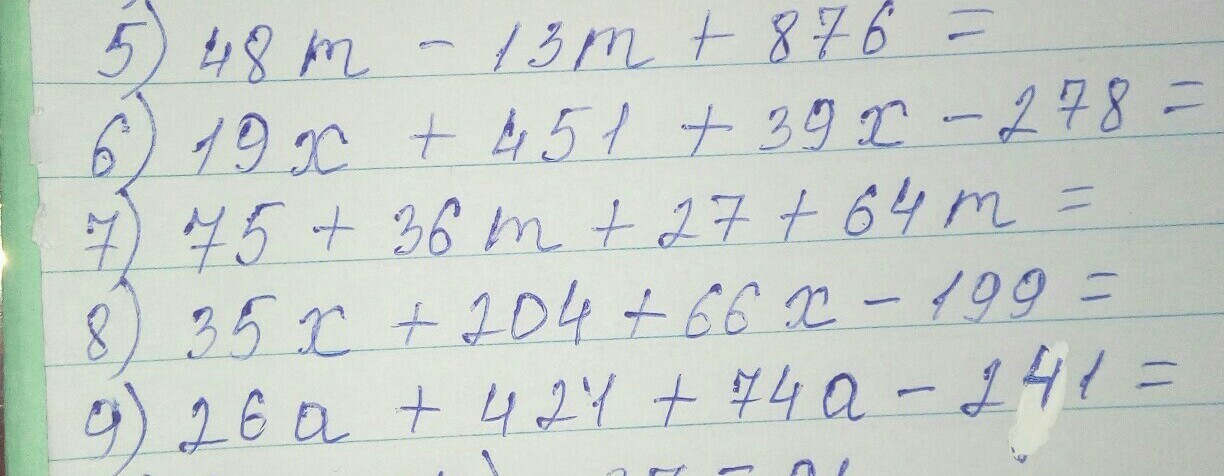 5) 48m - 13m + 876 =
6) 19x + 451 + 39x - 278 =
7) 75 + 36m + 27 + 64m =
8) 35x + 204 + 66x - 199 =
9) 26a + 421 + 74a - 241 =